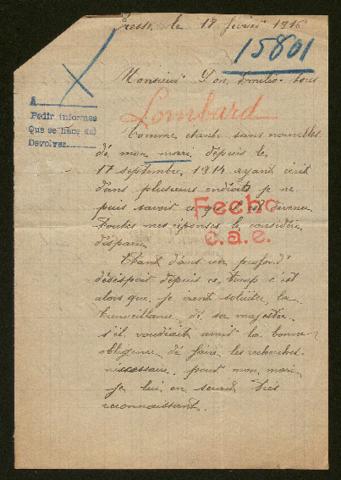 le 18 février 1916
15801
Monsieur Don Emilio
A
Pedir informes
Que se hace del
Devolver
Lombard
Comme étant sans nouvelles
de mon mari depuis le
17 septembre 1914 ayant écrit
dans plusieurs endroits je ne
puis savoir ce
Toutes mes réponses le considère
disparu
Fecho
c.a.e.
Etant dans un profond
désespoir depuis ce temps c'est
alors que je vient soliciter la
bienveillance de sa majesté
s'il voudrait avoir la bonne
obligence de faire les recherches
nécessaire pour mon mari
je lui en serait très
reconnaissant.